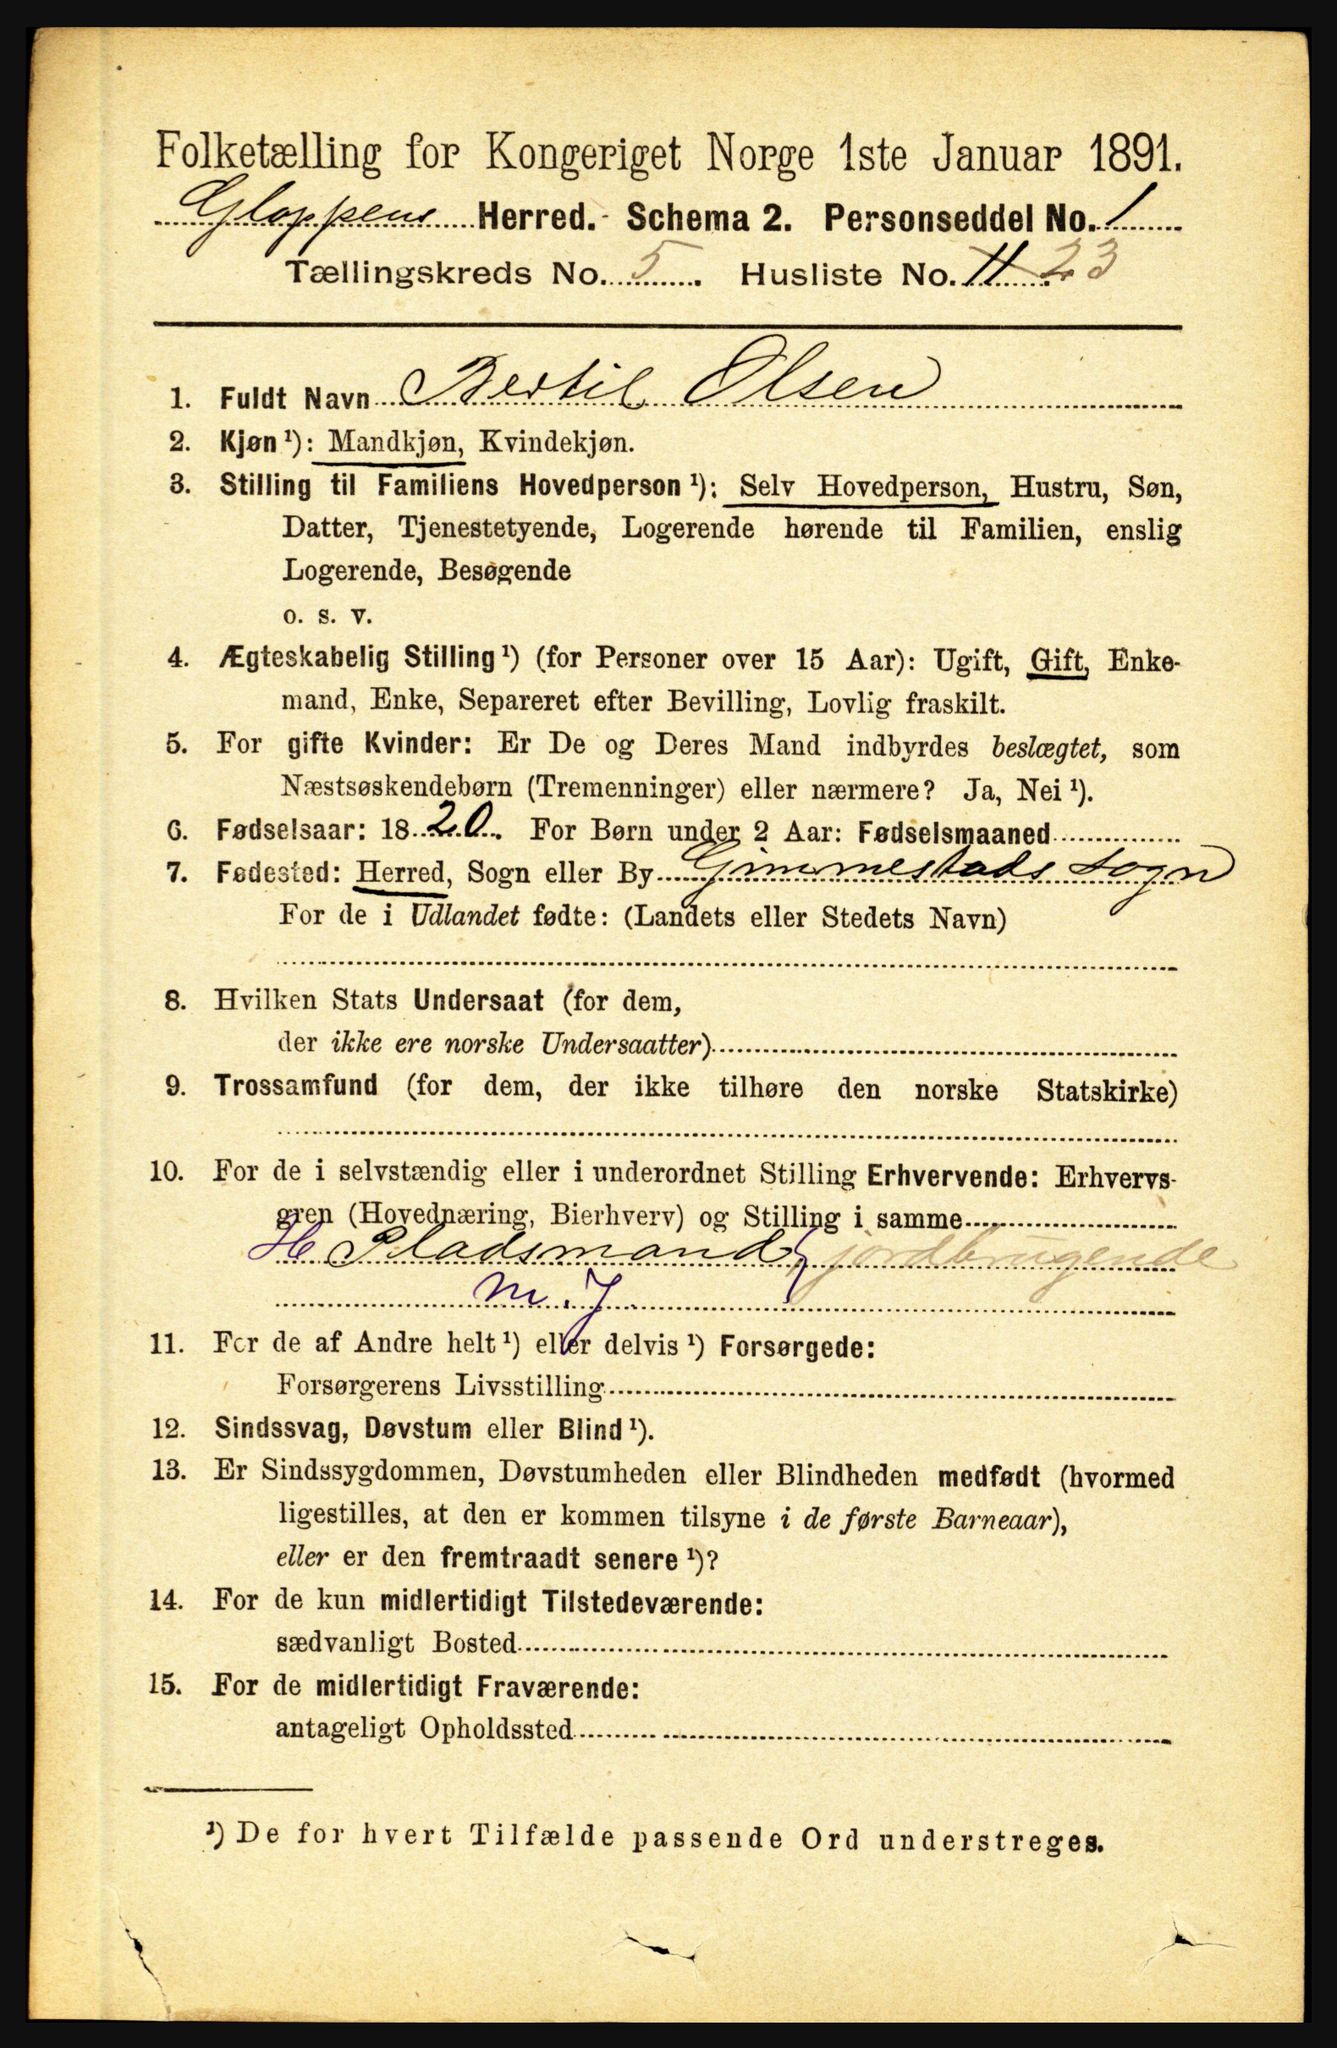 Folketælling for Kongeriget Norge 1ste Januar 1891.
Gloppens Herred. Schema 2. Personseddel No. 1
Tællingskreds No. 5. Husliste No. 11. 23
1. Fuldt Navn Bertil Olsen
2. Kjøn ¹): Mandkjøn, Kvindekjøn.
3. Stilling til Familiens Hovedperson ¹): Selv Hovedperson, Hustru, Søn,
Datter, Tjenestetyende, Logerende hørende til Familien, enslig
Logerende, Besøgende
o. s. v.
4. Ægteskabelig Stilling ¹) (for Personer over 15 Aar): Ugift, Gift, Enke-
mand, Enke, Separeret efter Bevilling, Lovlig fraskilt.
5. For gifte Kvinder: Er De og Deres Mand indbyrdes beslægtet, som
Næstsøskendebørn (Tremenninger) eller nærmere? Ja, Nei ¹).
6. Fødselsaar: 1820. For Børn under 2 Aar: Fødselsmaaned
7. Fødested: Herred, Sogn eller By Gimmestads sogn
For de i Udlandet fødte: (Landets eller Stedets Navn)
8. Hvilken Stats Undersaat (for dem,
der ikke ere norske Undersaatter)
9. Trossamfund (for dem, der ikke tilhøre den norske Statskirke)
10. For de i selvstændig eller i underordnet Stilling Erhvervende: Erhvervs-
gren (Hovednæring, Bierhverv) og Stilling i samme
H Pladsmand, jordbrugende
m. J
11. For de af Andre helt ¹) eller delvis ¹) Forsørgede:
Forsørgerens Livsstilling
12. Sindssvag, Døvstum eller Blind ¹).
13. Er Sindssygdommen, Døvstumheden eller Blindheden medfødt (hvormed
ligestilles, at den er kommen tilsyne i de første Barneaar),
eller er den fremtraadt senere ¹)?
14. For de kun midlertidigt Tilstedeværende:
sædvanligt Bosted
15. For de midlertidigt Fraværende:
antageligt Opholdssted
¹) De for hvert Tilfælde passende Ord understreges.